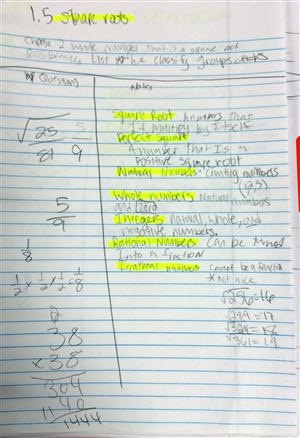 1.5 Square roots
Choose 2 whole number that is a square root
List the classify groups
Questions
Notes
Square Root A number that
Multiply by Itself
√25/81 5/9
Perfect Square
A number that Is a
positive square root
Natural Numbers: Conting numbers
(123)
Whole numbers Natural numbers
and zero
5/9
Integers natural, whole, and
negative numbers.
Rational Numbers Can be turned
Into a fraction
1/8
Irrational numbers cannot be a fraction
* not nice
1/2 x 1/2 x 1/2 = 1/8
√256=16
√289=17
√324=18
√361=19
38
x 38
304
1140
1444